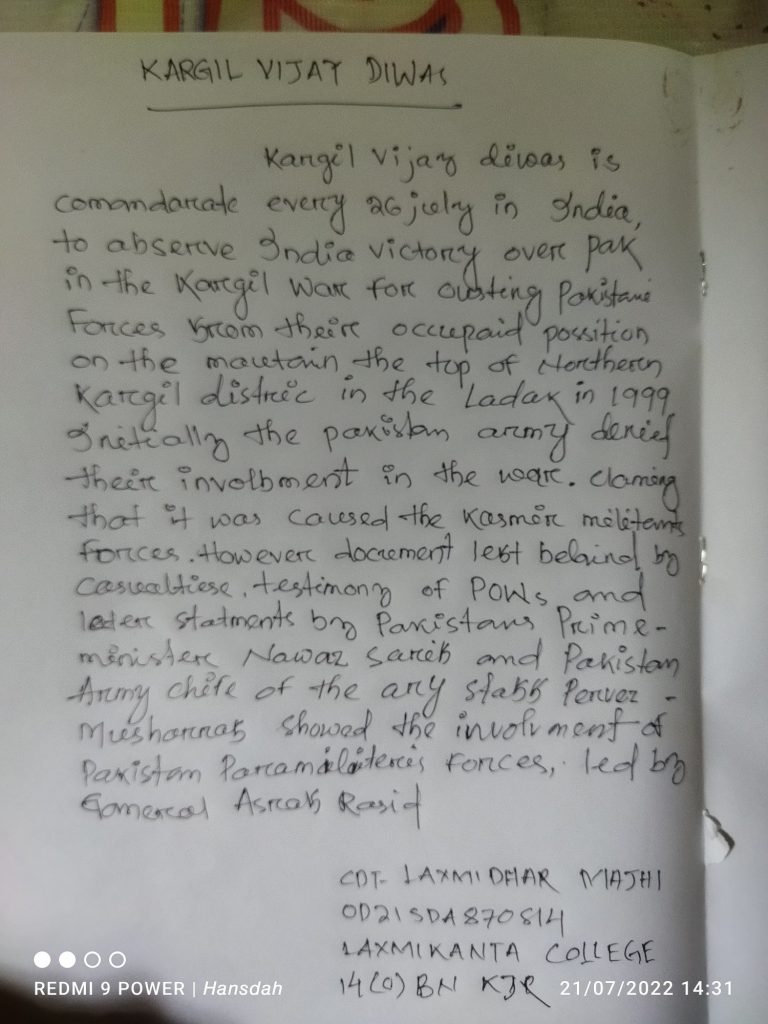 KARGIL VIJAY DIWAS
Kargil vijay diwas is
comandarate every 26 july in India,
to abserve India victory over pak
in the Kargil war for ousting Pakistani
Forces from their occupaid possition
on the mautain the top of Northern
Kargil distric in the Ladak in 1999
Initially the pakistan army denied
their involbment in the war. claming
that it was caused the Kasmir militants
forces. However document left behind by
Casualtiese, testimony of POWs and
later statments by Pakistans Prime-
minister Nawaz Sarif and Pakistan
Army chife of the ary staff Pervez -
Musharraf showed the involvment of
Pakistan Paramiliteris forces, led by
General Asraf Rasid
CDT- LAXMIDHAR MAJHI
OD21SDA870514
LAXMIKANTA COLLEGE
14(O) BN KJR
REDMI 9 POWER | Hansdah
21/07/2022 14:31